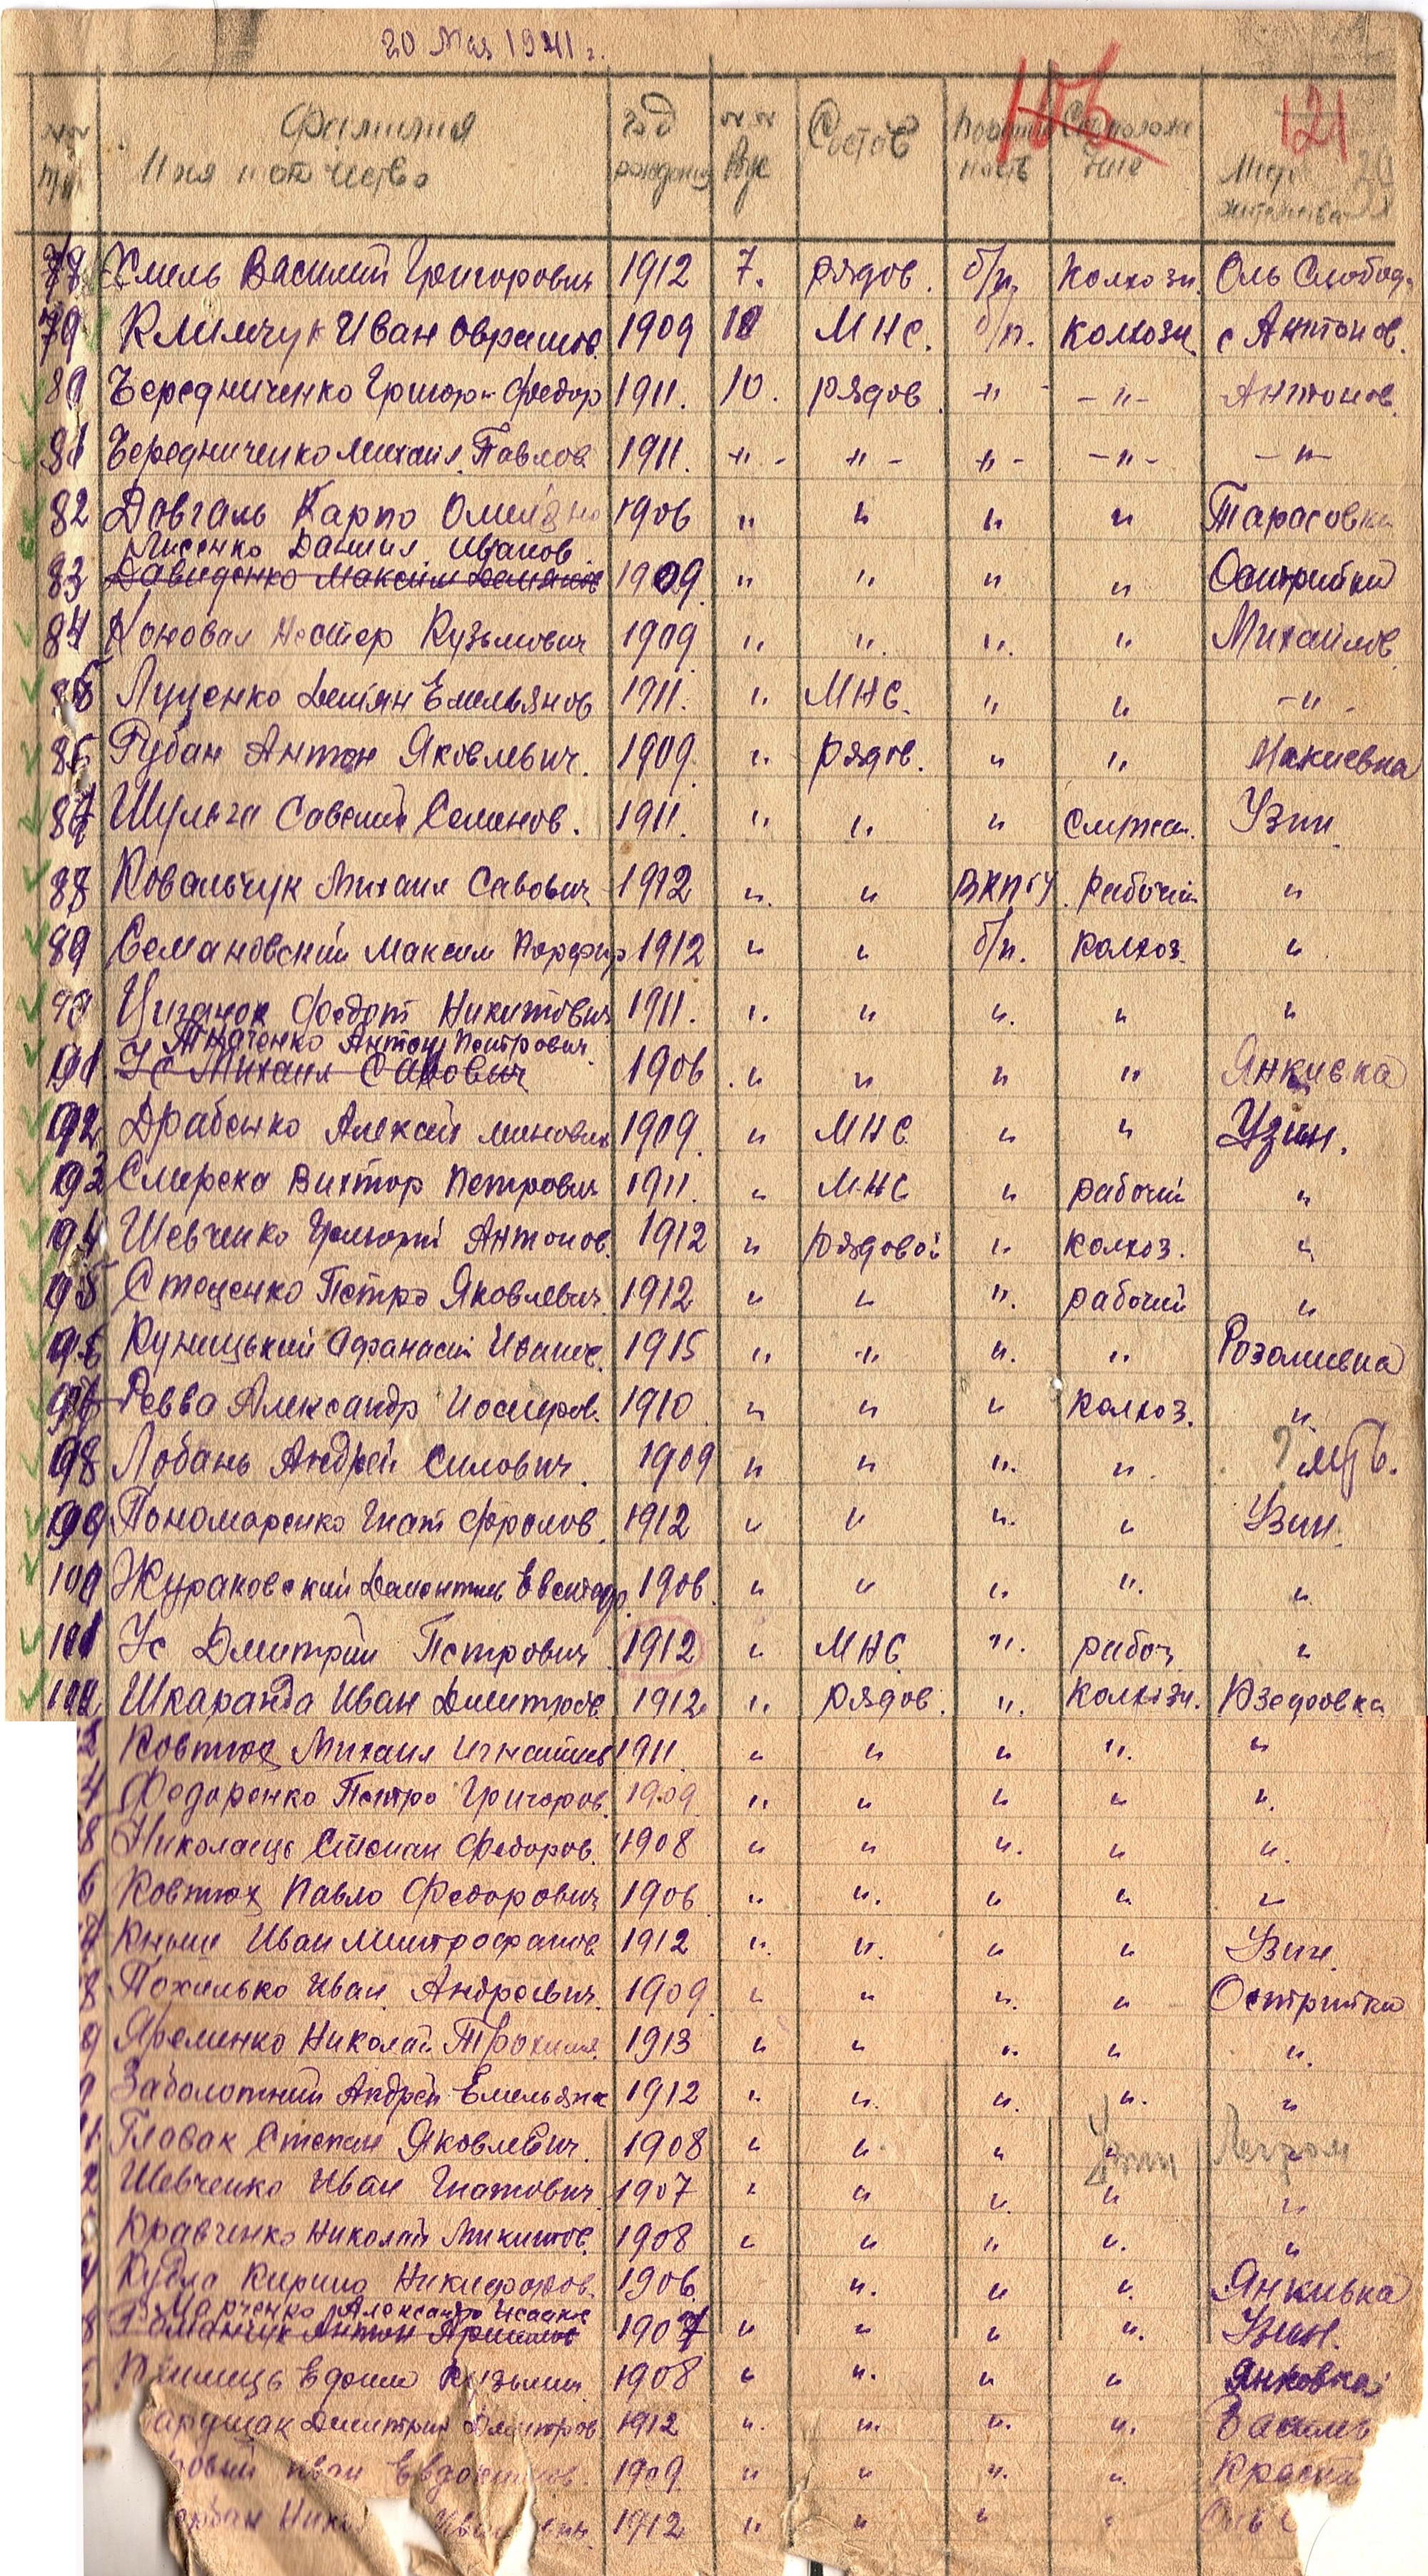 20 Мая 1941 г.
121
Фамилия Имя и отчество год рождения Состав
78 Хмель Василий Григорович 1912 7. рядов. б/п. колхозн. Оль Слобод.
79 Климчук Иван 1909 МНС. б/п. колхозн. с Антонов.
80 Бередниченко Григори Федор 1911. 10. рядов. -"- -"- Антонов.
81 Бередниченко Михаил Павлов 1911. -"- -"- -"- -"- -"-
82 Довгаль Карпо 1906 " " " " Тарасовка
Лисенко Даниил Иванов
83 Давиденко Максим 1909. " " " " Острийки
84 Коновал Нестер Кузьмович 1909 " " " " Михайлов.
85 Луценко Демян Емельянов 1911. " МНС. " " -"-
86 Рубан Антон Яковлевич. 1909 " рядов. " " Макиевка
87 Шульга Савелий Семенов. 1911. " " " служащ. Узин.
88 Ковальчук Михаил Савович 1912 " " рабочий "
89 Семановский Максим Порфир 1912 " " б/п. колхоз. "
90 Циганок Федот Никитович 1911. " " " " "
Ткаченко Антон Петрович
91 Ус Михаил Савович 1906. " " " " Янкивка
92 Драбенко Алексей 1909. " МНС. " " Узин.
93 Смерека Виктор Петрович 1911. " МНС " рабочий "
94 Шевченко Антонов. 1912 " рядовой " колхоз. "
95 Стеценко Петро Яковлевич 1912 " " " рабочий "
96 Куницький Афанасий Иванов. 1915 " " " " Розаливка
97 Ревва Александр Иосифов. 1910 " " " колхоз. "
98 Лобань Андрей Силович. 1909 " " " "
99 Пономаренко Гнат Фролов. 1912 " " " " Узин.
100 Жураковский 1906. " " " " "
101 Ус Дмитрий Петрович 1912 " МНС " рабоч. "
102 Шкаранда Иван Дмитров. 1912 " рядов. " колхозн.
Ковтюх Михаил 1911 " " " " "
4 Федоренко Петро Григоров. 1909. " " " " "
Николаець Степан Федоров. 1908 " " " " "
6 Ковтюх Павло Федорович 1906 " " " " "
Книш Иван Митрофанов. 1912 " " " " Узин.
8 Похилько Иван Андреевич. 1909. " " " " Острийки
9 Яременко Николай 1913 " " " " "
Заболотний Андрей Емельянов 1912 " " " " "
Главак Степан Яковлевич. 1908 " " " "
2 Шевченко Иван Гнатович 1907 " " " " "
Кравченко Николай Микитов. 1908 " " " " "
4 Кудла Кирило Никифоров. 1906. " " " Янкивка
Марченко Александр Исааков
Романчук Антон 1907 " " " " Узин.
Евдоким Кузьмич 1908 " " " " Янковка
Дмитрий Дмитров 1912 " " " "
Иван Евдокимов. 1909 " " " "
1912 " " " "